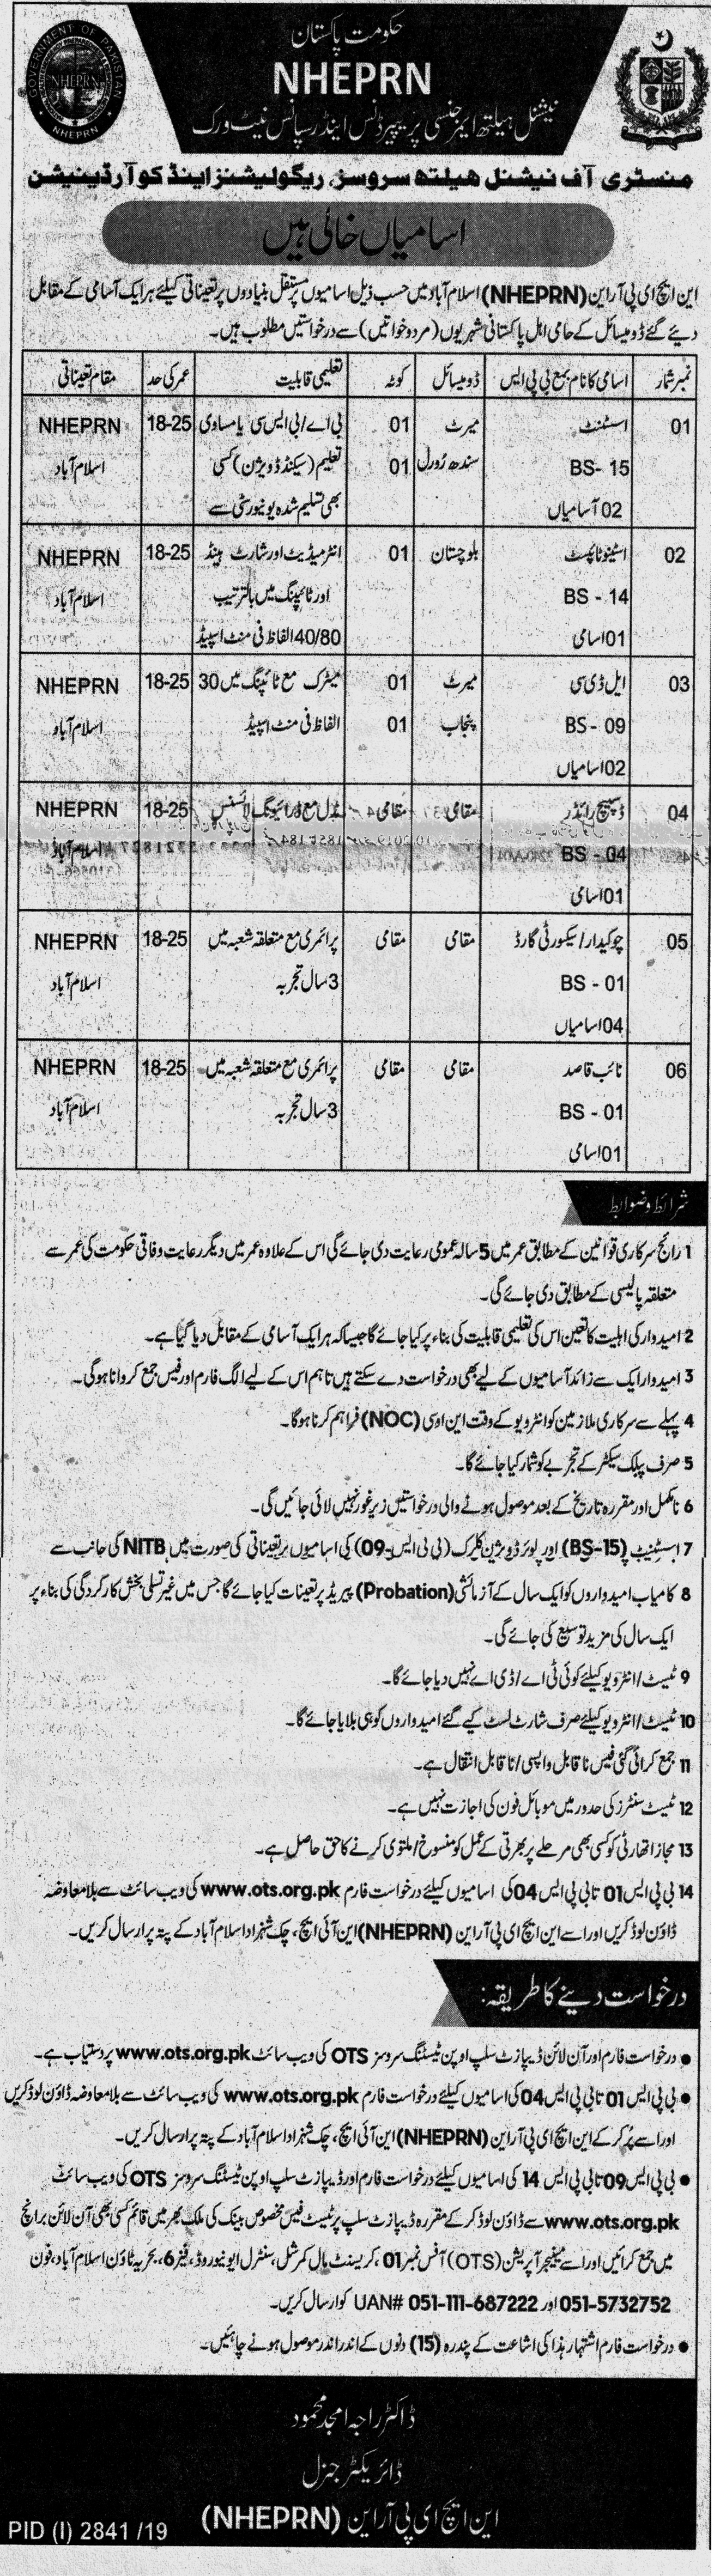 حکومت پاکستان
NHEPRN
نیشنل ہیلتھ ایمرجنسی پریپیرڈنس اینڈ رسپانس نیٹ ورک
GOVERNMENT OF PAKISTAN
NHEPRN
NHEPRN
منسٹری آف نیشنل ہیلتھ سروسز، ریگولیشنز اینڈ کوآرڈینیشن
اسامیاں خالی ہیں
این ایچ ای پی آر این (NHEPRN) اسلام آباد میں حسب ذیل اسامیوں پر مستقل بنیادوں پر تعیناتی کیلئے ہر ایک آسامی کے مقابل
دیے گئے ڈومیسائل کے حامی اہل پاکستانی شہریوں (مرد و خواتین) سے درخواستیں مطلوب ہیں۔
نمبر شمار اسامی کا نام بمع بی پی ایس ڈومیسائل کوٹہ تعلیمی قابلیت عمر کی حد مقام تعیناتی
01 اسسٹنٹ میرٹ 01 بی اے/بی ایس سی یا مساوی 18-25 NHEPRN
BS- 15 سندھ رورل 01 تعلیم (سیکنڈ ڈویژن) کسی اسلام آباد
02 آسامیاں بھی تسلیم شدہ یونیورسٹی سے
02 اسٹینو ٹائپسٹ بلوچستان 01 انٹرمیڈیٹ اور شارٹ ہینڈ 18-25 NHEPRN
BS - 14 اور ٹائپنگ میں بالترتیب اسلام آباد
01 اسامی 40/80 الفاظ فی منٹ اسپیڈ
03 ایل ڈی سی میرٹ 01 میٹرک مع ٹائپنگ میں 30 18-25 NHEPRN
BS - 09 پنجاب 01 الفاظ فی منٹ اسپیڈ اسلام آباد
02 اسامیاں
04 ڈسپیچ رائڈر مقامی مقامی مڈل مع ڈرائیونگ لائسنس 18-25 NHEPRN
BS - 04 اسلام آباد
01 اسامی
05 چوکیدار/سیکورٹی گارڈ مقامی مقامی پرائمری مع متعلقہ شعبہ میں 18-25 NHEPRN
BS - 01 3 سال تجربہ اسلام آباد
04 اسامیاں
06 نائب قاصد مقامی مقامی پرائمری مع متعلقہ شعبہ میں 18-25 NHEPRN
BS - 01 3 سال تجربہ اسلام آباد
01 اسامی
شرائط و ضوابط
1 رائج سرکاری قوانین کے مطابق عمر میں 5 سالہ عمومی رعایت دی جائے گی اس کے علاوہ عمر میں دیگر رعایت وفاقی حکومت کی عمر سے
متعلقہ پالیسی کے مطابق دی جائے گی۔
2 امیدوار کی اہلیت کا تعین اس کی تعلیمی قابلیت کی بناء پر کیا جائے گا جیسا کہ ہر ایک آسامی کے مقابل دیا گیا ہے۔
3 امیدوار ایک سے زائد آسامیوں کے لیے بھی درخواست دے سکتے ہیں تاہم اس کے لیے الگ فارم اور فیس جمع کروانا ہوگی۔
4 پہلے سے سرکاری ملازمین کو انٹرویو کے وقت این او سی (NOC) فراہم کرنا ہوگا۔
5 صرف پبلک سیکٹر کے تجربے کو شمار کیا جائے گا۔
6 نامکمل اور مقررہ تاریخ کے بعد موصول ہونے والی درخواستیں زیر غور نہیں لائی جائیں گی۔
7 اسسٹنٹ (BS-15) اور لوئر ڈویژن کلرک (بی پی ایس-09) کی اسامیوں پر تعیناتی کی صورت میں NITB کی جانب سے
8 کامیاب امیدواروں کو ایک سال کے آزمائشی (Probation) پیریڈ پر تعینات کیا جائے گا جس میں غیر تسلی بخش کارکردگی کی بناء پر
ایک سال کی مزید توسیع کی جائے گی۔
9 ٹیسٹ/انٹرویو کیلئے کوئی ٹی اے/ڈی اے نہیں دیا جائے گا۔
10 ٹیسٹ/انٹرویو کیلئے صرف شارٹ لسٹ کیے گئے امیدواروں کو ہی بلایا جائے گا۔
11 جمع کرائی گئی فیس ناقابل واپسی/ناقابل انتقال ہے۔
12 ٹیسٹ سنٹرز کی حدود میں موبائل فون کی اجازت نہیں ہے۔
13 مجاز اتھارٹی کو کسی بھی مرحلے پر بھرتی کے عمل کو منسوخ/ملتوی کرنے کا حق حاصل ہے۔
14 بی پی ایس 01 تا بی پی ایس 04 کی اسامیوں کیلئے درخواست فارم www.ots.org.pk کی ویب سائٹ سے بلا معاوضہ
ڈاؤن لوڈ کریں اور اسے این ایچ ای پی آر این (NHEPRN) این آئی ایچ، چک شہزاد اسلام آباد کے پتہ پر ارسال کریں۔
درخواست دینے کا طریقہ:
● درخواست فارم اور آن لائن ڈیپازٹ سلپ اوپن ٹیسٹنگ سروسز OTS کی ویب سائٹ www.ots.org.pk پر دستیاب ہے۔
● بی پی ایس 01 تا بی پی ایس 04 کی اسامیوں کیلئے درخواست فارم www.ots.org.pk کی ویب سائٹ سے بلا معاوضہ ڈاؤن لوڈ کریں
اور اسے پُر کر کے این ایچ ای پی آر این (NHEPRN) این آئی ایچ، چک شہزاد اسلام آباد کے پتہ پر ارسال کریں۔
● بی پی ایس 09 تا بی پی ایس 14 کی اسامیوں کیلئے درخواست فارم اور ڈیپازٹ سلپ اوپن ٹیسٹنگ سروسز OTS کی ویب سائٹ
www.ots.org.pk سے ڈاؤن لوڈ کر کے مقررہ ڈیپازٹ سلپ پر ٹیسٹ فیس مخصوص بینک کی ملک بھر میں قائم کسی بھی آن لائن برانچ
میں جمع کرائیں اور اسے مینیجر آپریشن (OTS) آفس نمبر 01، کریسنٹ مال کمرشل، سنٹرل ایونیو روڈ، فیز 6، بحریہ ٹاؤن اسلام آباد، فون
051-5732752 اور UAN# 051-111-687222 کو ارسال کریں۔
● درخواست فارم اشتہار ہذا کی اشاعت کے پندرہ (15) دنوں کے اندر اندر موصول ہونے چاہئیں۔
ڈاکٹر راجہ امجد محمود
ڈائریکٹر جنرل
این ایچ ای پی آر این (NHEPRN)
PID (I) 2841 /19